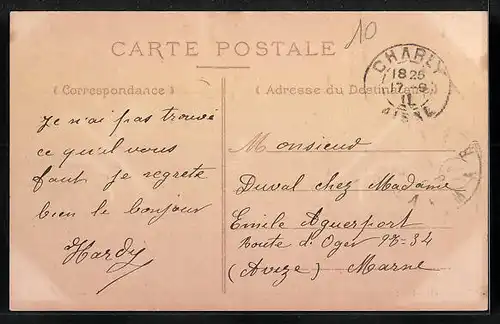 10
CARTE POSTALE
(Correspondance)
(Adresse du Destinataire)
CHARLY
18 25
17-9
11
AISNE
Je n'ai pas trouvé
ce qu'il vous
faut je regrete
bien le bonjour
Hardy
Monsieur
Duval chez Madame
Emile Aguerport
Route d'Oger 27-34
(Avize) Marne